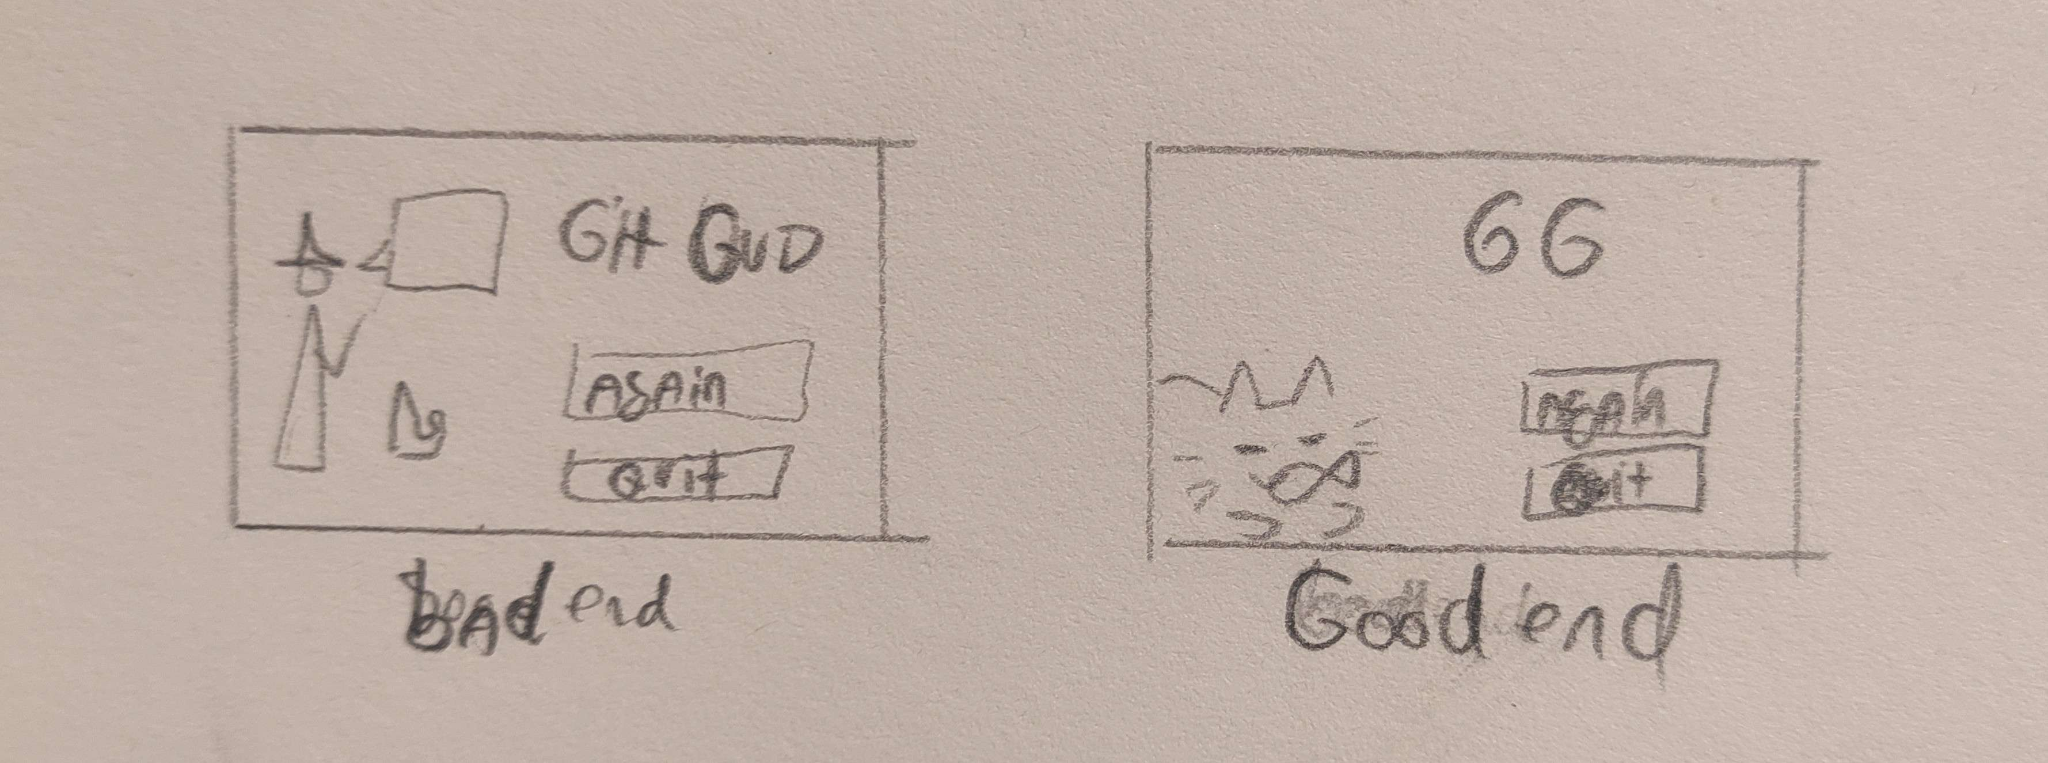 Git GUD
AgAin
Quit
bad end
GG
Again
Quit
Good end